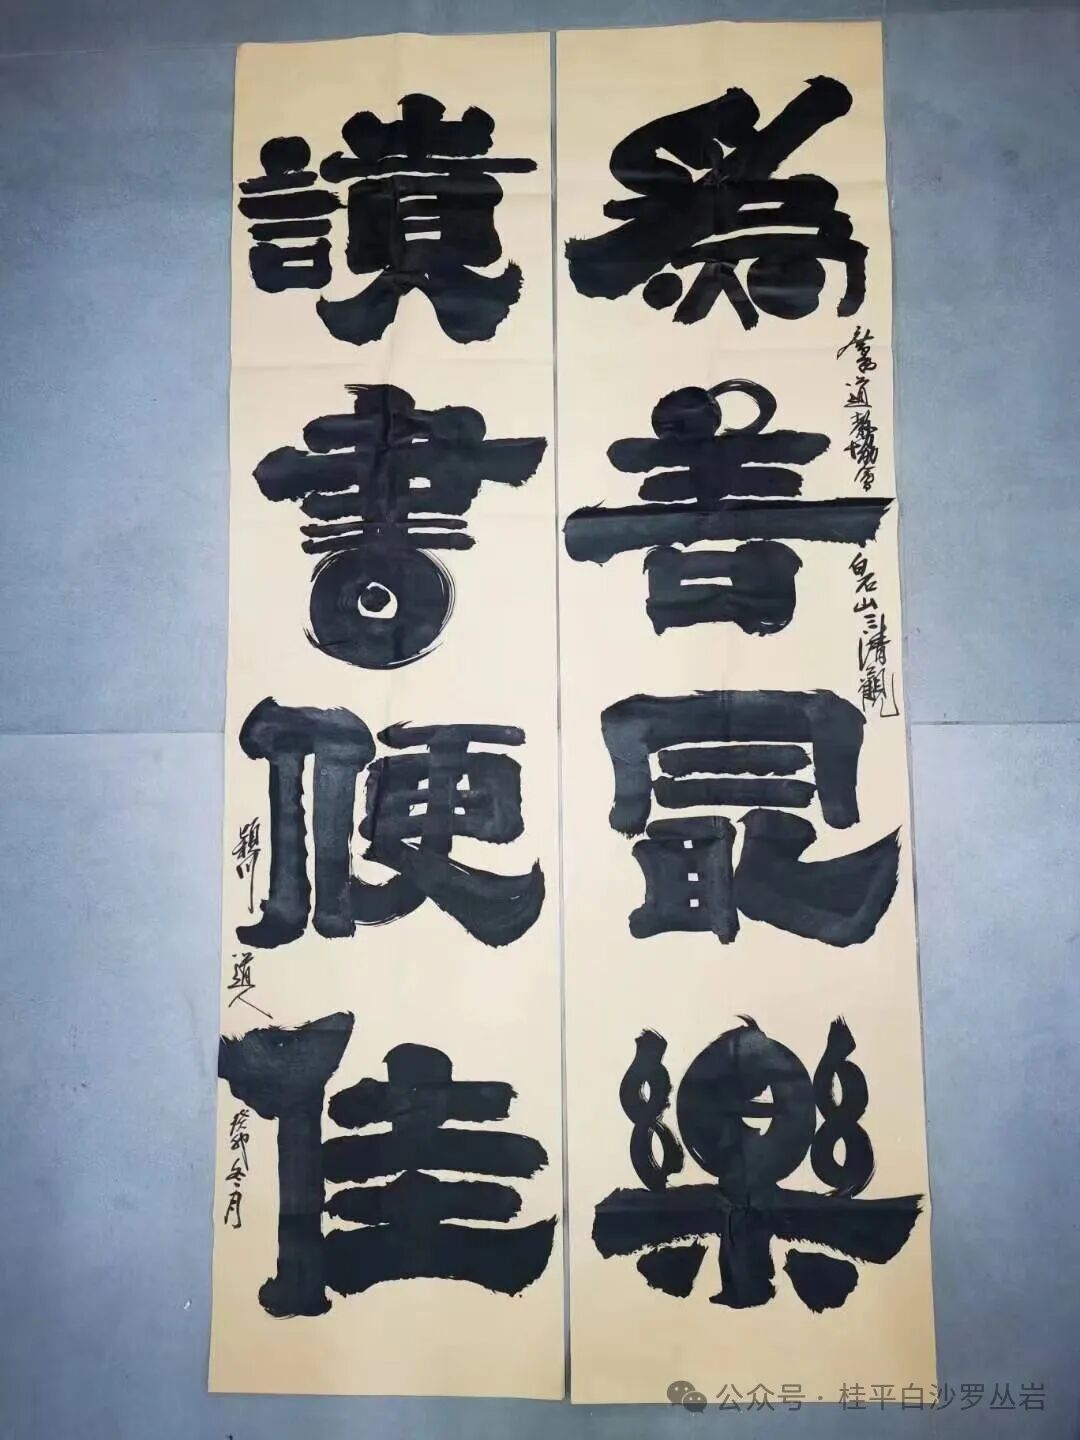 爲善最樂
廣西道教協會
白石山三清觀
讀書便佳
穎川道人
癸卯冬月
公众号 · 桂平白沙罗丛岩